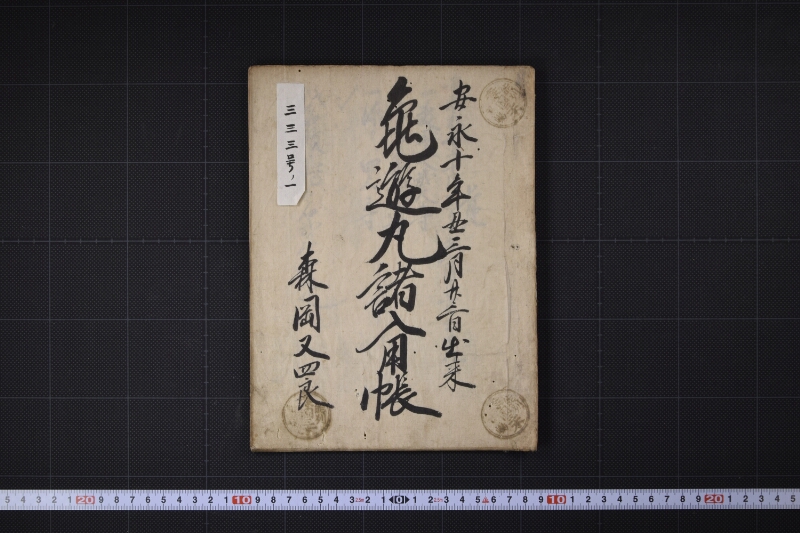 安永十年丑三月廿三日出来
亀遊丸諸入用帳
森岡又四良
三三三号ノ一
5 4 3 2 1 20 9 8 7 6 5 4 3 2 1 10 9 8 7 6 5 4 3 2 1 0 1 2 3 4 5 6 7 8 9 10 1 2 3 4 5 6 7 8 9 20 1 2 3 4 5